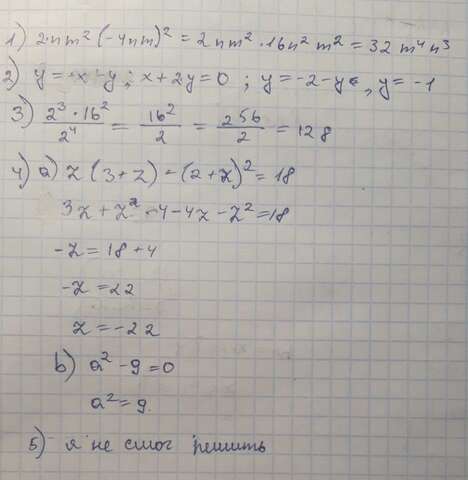 1) 2·nm²(-4nm)² = 2nm²·16n²m² = 32m⁴n³
2) y=-x-y; x+2y=0; y=-2-y, y=-1
3) 2³·16²/2⁴ = 16²/2 = 256/2 = 128
4) a) z(3+z)-(2+z)²=18
3z+z²-4-4z-z²=18
-z=18+4
-z=22
z=-22
b) a²-9=0
a²=9.
5) я не смог решить